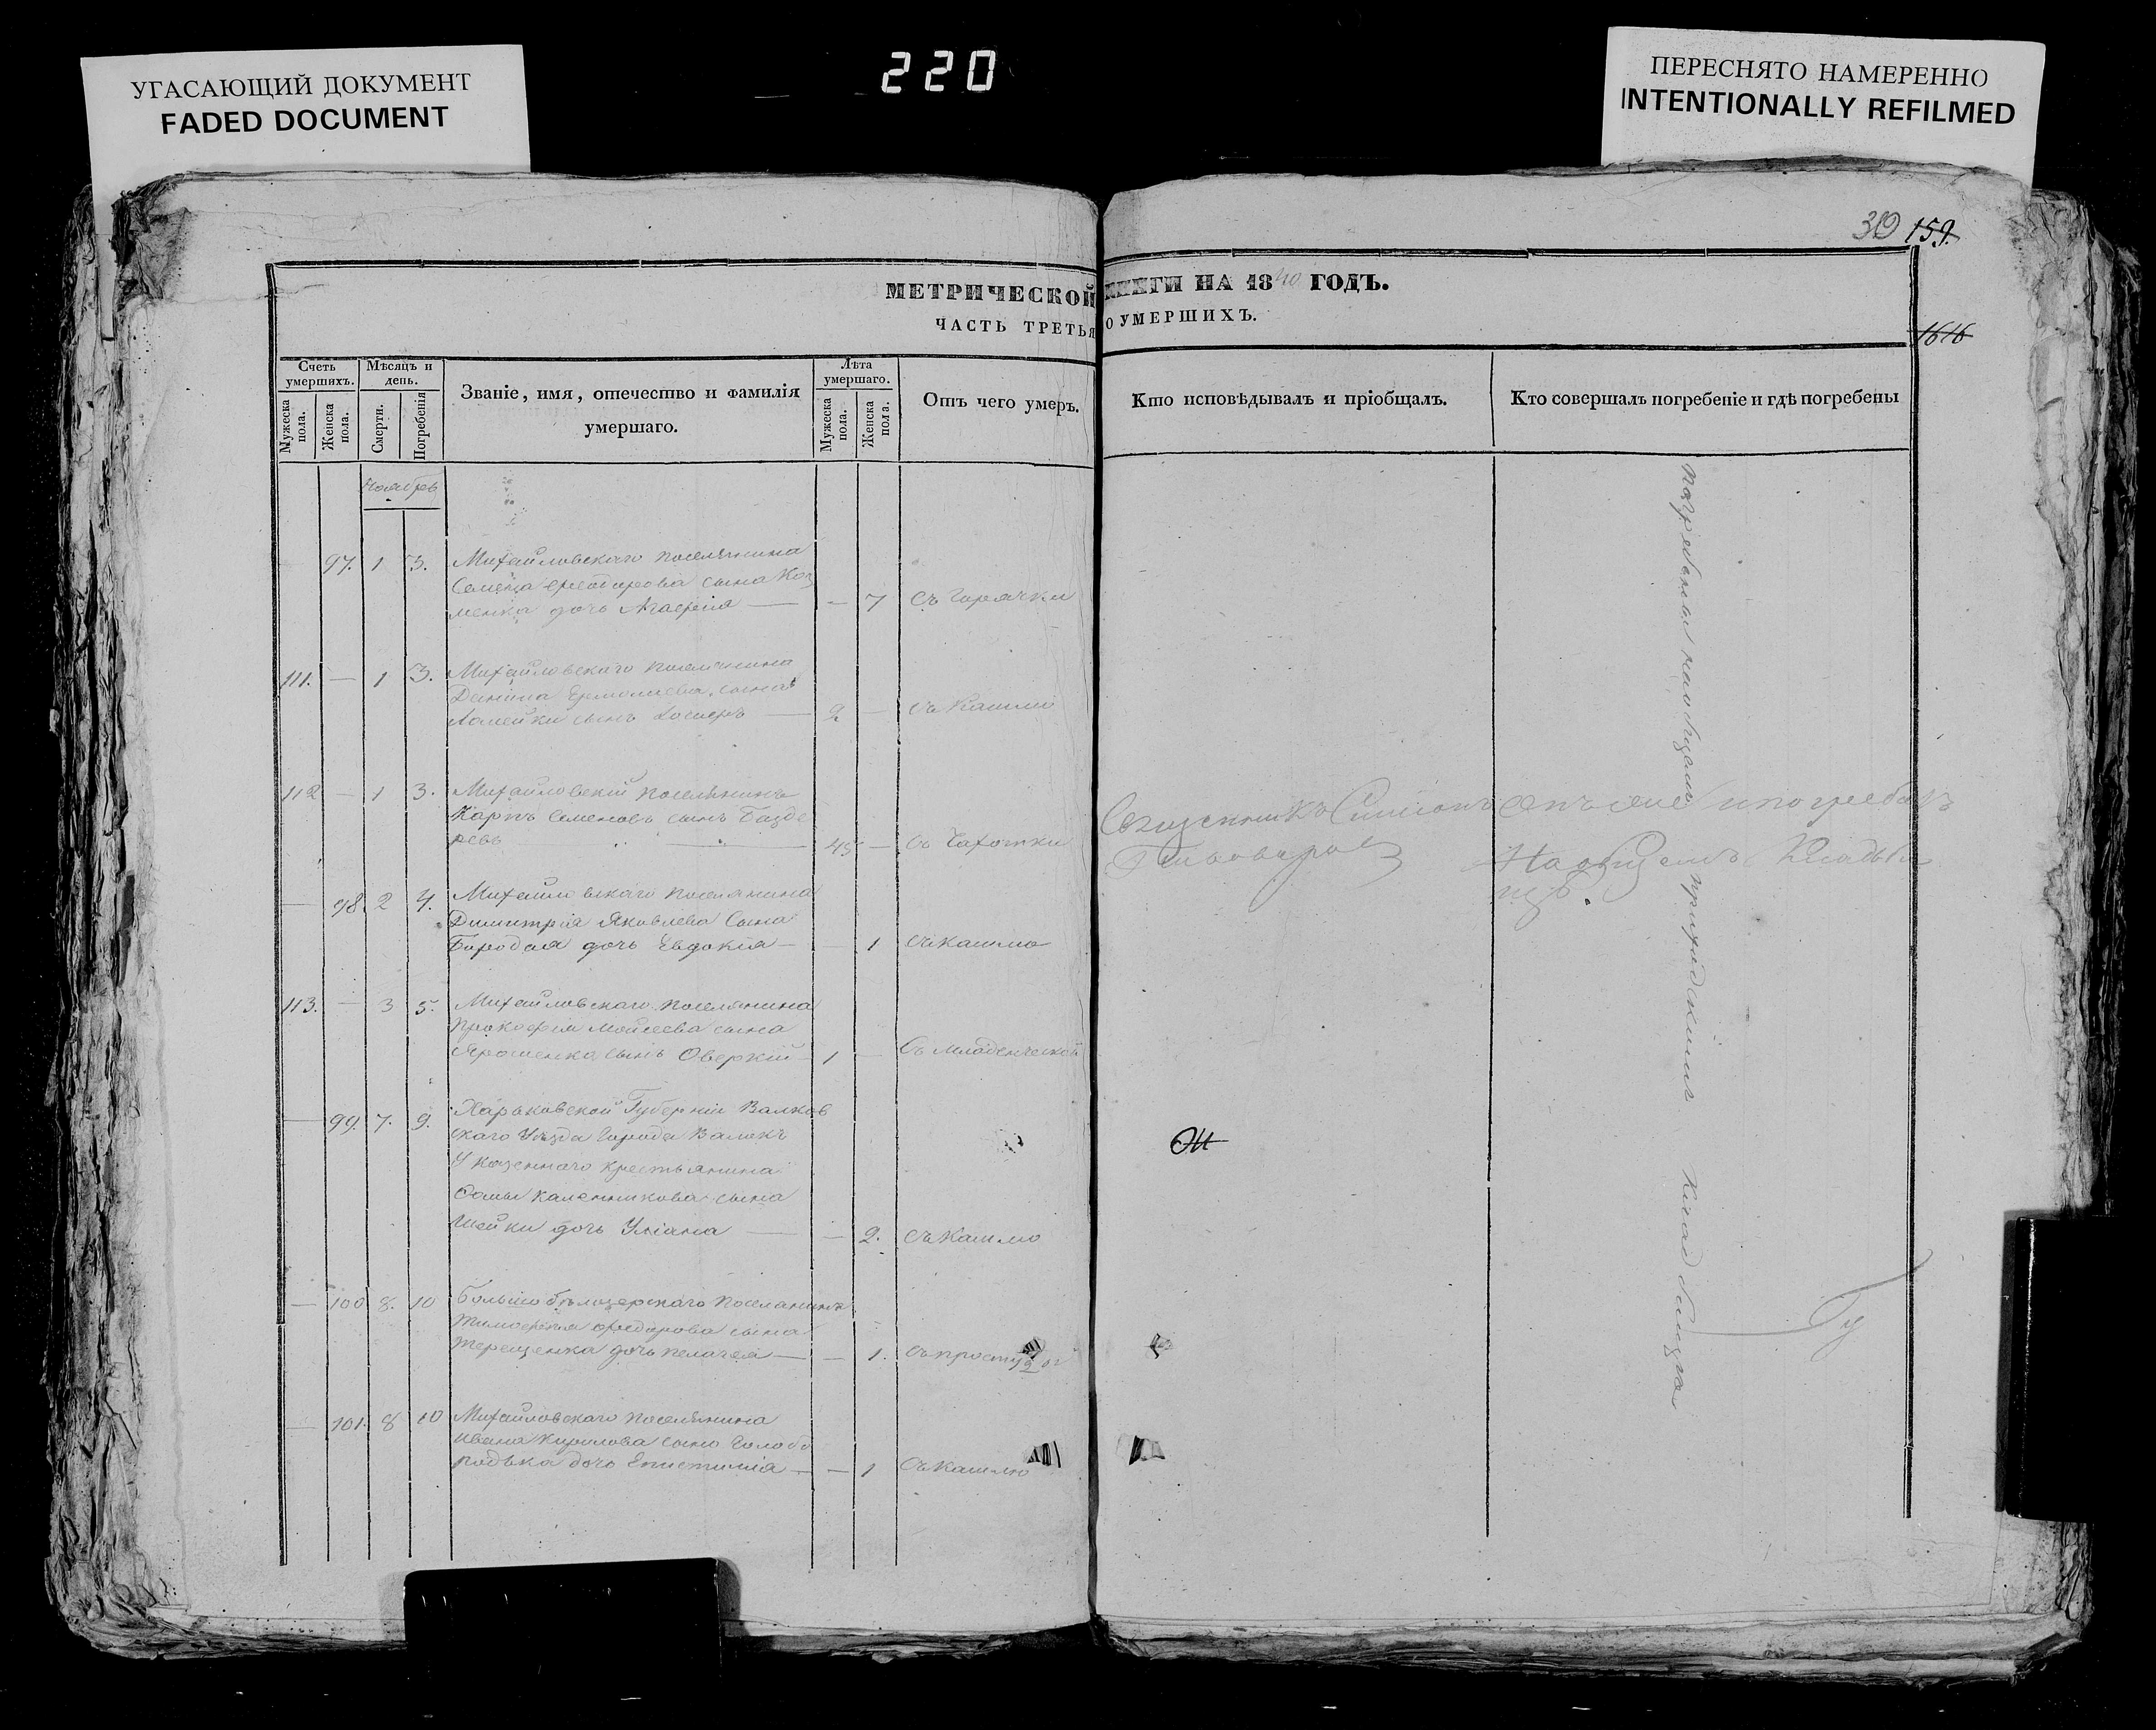 УГАСАЮЩИЙ ДОКУМЕНТ
FADED DOCUMENT
220
ПЕРЕСНЯТО НАМЕРЕННО
INTENTIONALLY REFILMED
159.
МЕТРИЧЕСКОЙ КНИГИ НА 1840 ГОДЪ.
ЧАСТЬ ТРЕТЬЯ О УМЕРШИХЪ.
1616
Счетъ умершихъ.
Мужеска пола.
Женска пола.
Мѣсяцъ и день.
Смерти.
Погребенія
Званіе, имя, отечество и фамилія
умершаго.
Лѣта умершаго.
Мужеска пола.
Женска пола.
Отъ чего умеръ.
Кто исповѣдывалъ и пріобщалъ.
Кто совершалъ погребеніе и гдѣ погребены
Ноябрь
97. 1 3. Михайловскаго поселянина
сына Коз
менка дочь Агафія — — 7 съ Горячки
111. — 1 3. Михайловскаго поселянина
Ермолаева сына
сынъ — 2 — съ Кашлю
112 — 1 3. Михайловскій поселянинъ
Карпъ Семеновъ сынъ Базде
ревъ — 45 — съ Чахотки
Священникъ Симеонъ
Пивоваровъ
и погребалъ
На общемъ Кладби
щѣ.
— 98. 2 4. Михайловскаго поселянина
Димитрія Яковлева Сына
Бородая дочь Евдокія — — 1 съ кашлю
113. — 3 5. Михайловскаго поселянина
Прокофія Мойсеева сына
Ярошенка сынъ Оверкій 1 — Съ младенческой
— 99. 7. 9. Харьковской Губерніи Валков
скаго Уѣзда Города Валокъ
казеннаго крестьянина
Саммы Каленникова сына
Шейки дочь Уліана — — 2. съ Кашлю
— 100 8. 10 Большобѣлозерскаго поселянина
Тимофея Федорова сына
Терещенка дочь Пелагея — — 1. съ простудой
— 101. 8 10 Михайловскаго поселянина
Ивана Кирилова сына Голобо
родька дочь Епистимія — — 1 съ Кашлю
погребены на общемъ приходскомъ кладбищѣ